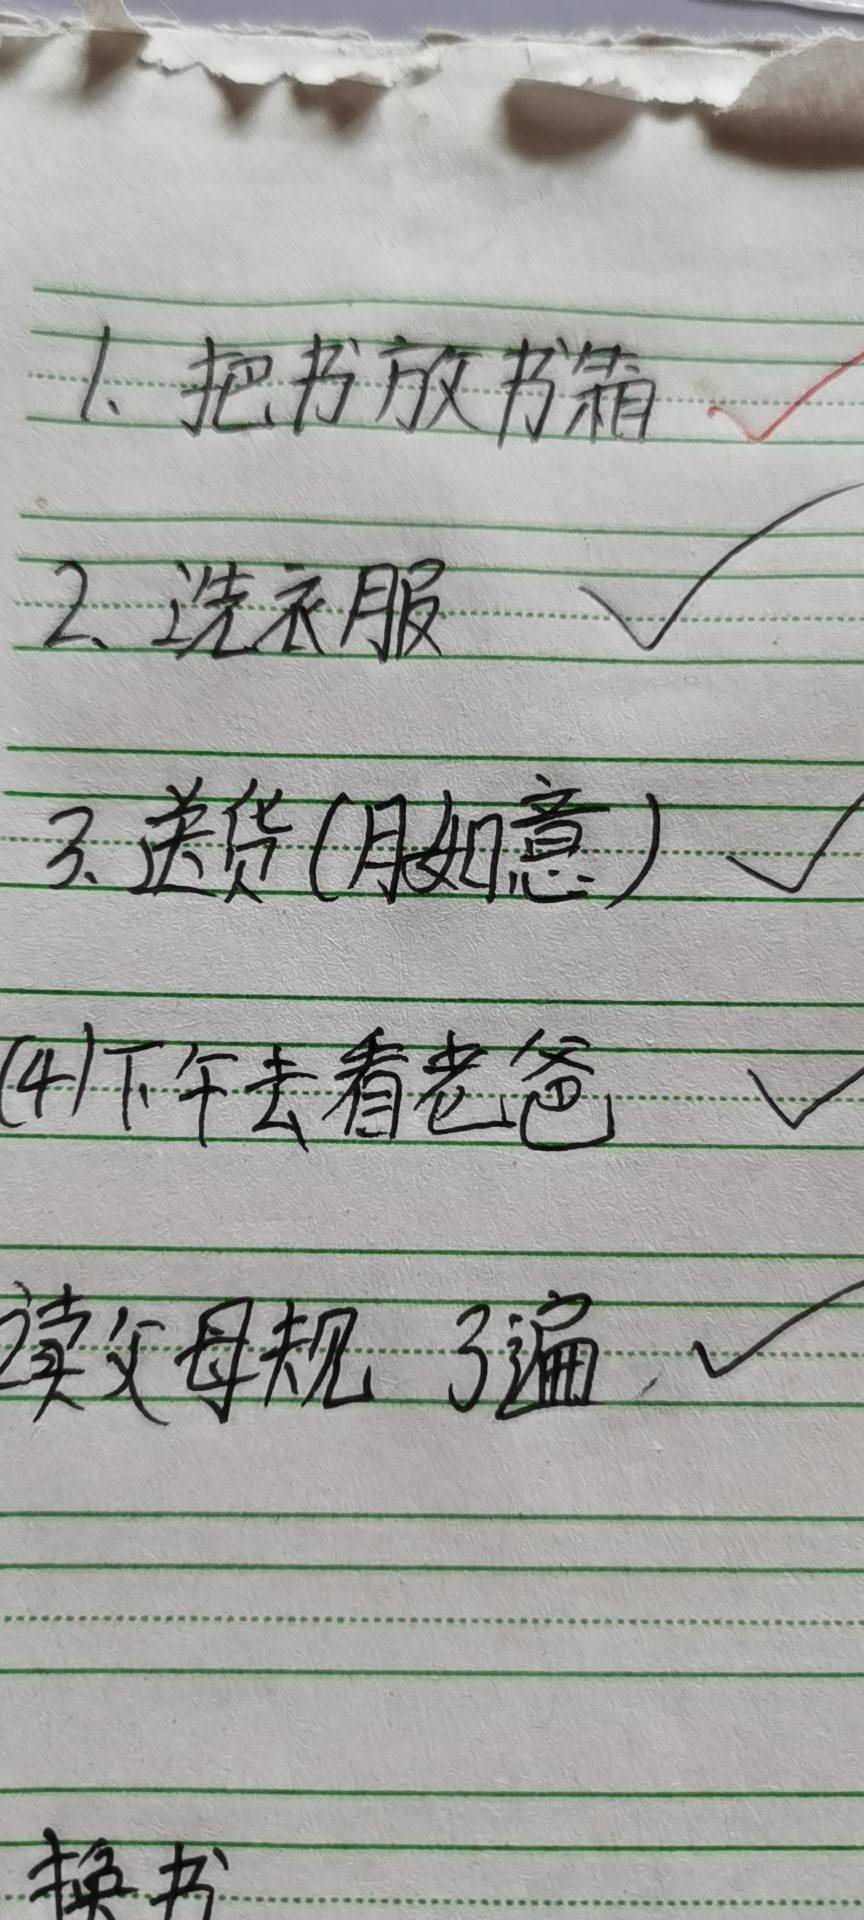 1. 把书放书箱
2、洗衣服
3、送货(月如意)
(4)下午去看老爸
读父母规 3遍
换书